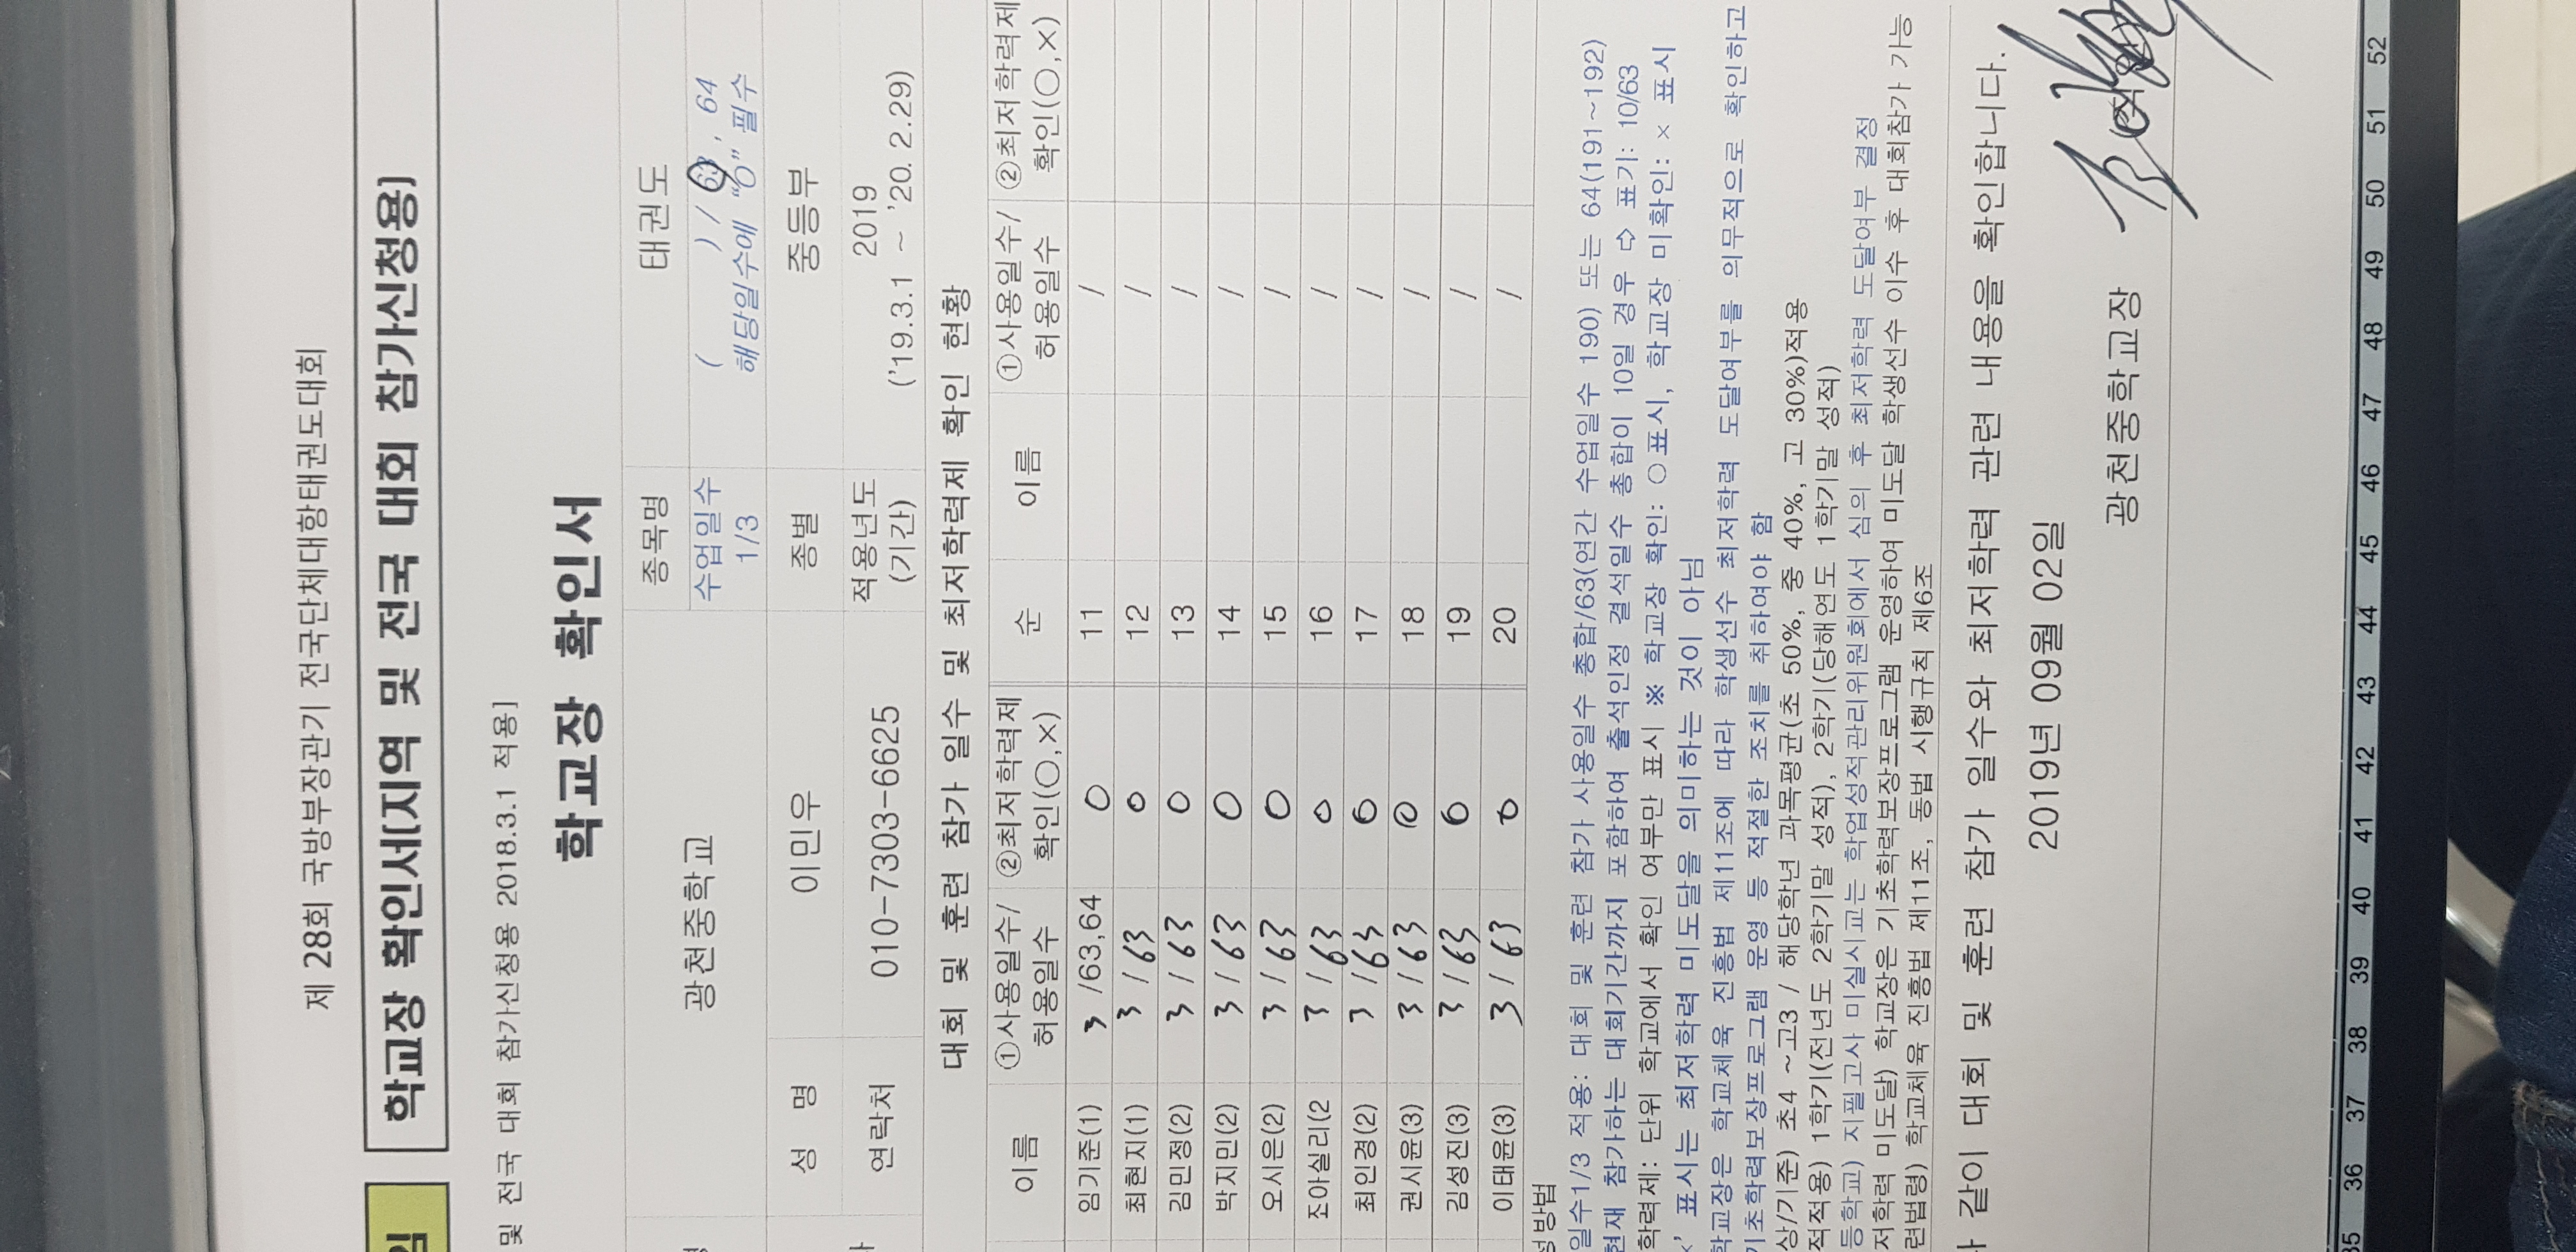 제 28회 국방부장관기 전국단체대항태권도대회
학교장 확인서[지역 및 전국 대회 참가신청용]
및 전국 대회 참가신청용 2018.3.1 적용]
학교장 확인서
광천중학교 종목명 태권도
수업일수 1/3 ( ) / 63, 64
해당일수에 "O" 필수
성 명 이민우 종별 중등부
연락처 010-7303-6625 적용년도 (기간) 2019
('19.3.1 ~ '20. 2.29)
대회 및 훈련 참가 일수 및 최저학력제 확인 현황
이름 ①사용일수/허용일수 ②최저학력제 확인(○,×) 순 이름 ①사용일수/허용일수 ②최저학력제 확인(○,×)
임기준(1) 3 /63,64 O 11 /
최현지(1) 3 / 63 O 12 /
김민정(2) 3 / 63 O 13 /
박지민(2) 3 / 63 O 14 /
오시은(2) 3 / 63 O 15 /
조아실리(2 3 / 63 O 16 /
최인경(2) 3 / 63 O 17 /
권시윤(3) 3 / 63 O 18 /
김성진(3) 3 / 63 O 19 /
이태윤(3) 3 / 63 O 20 /
성방법
일수1/3 적용: 대회 및 훈련 참가 사용일수 총합/63(연간 수업일수 190) 또는 64(191~192)
현재 참가하는 대회기간까지 포함하여 출석인정 결석일수 총합이 10일 경우 ⇨ 표기: 10/63
학력제: 단위 학교에서 확인 여부만 표시 ※ 학교장 확인: ○표시, 학교장 미확인: × 표시
×' 표시는 최저학력 미도달을 의미하는 것이 아님
학교장은 학교체육 진흥법 제11조에 따라 학생선수 최저학력 도달여부를 의무적으로 확인하고
기초학력보장프로그램 운영 등 적절한 조치를 취하여야 함
상/기준) 초4 ~고3 / 해당학년 과목평균(초 50%, 중 40%, 고 30%)적용
적적용) 1학기(전년도 2학기말 성적), 2학기(당해연도 1학기말 성적)
등학교) 지필고사 미실시교는 학업성적관리위원회에서 심의 후 최저학력 도달여부 결정
저학력 미도달) 학교장은 기초학력보장프로그램 운영하여 미도달 학생선수 이수 후 대회참가 가능
련법령) 학교체육 진흥법 제11조, 동법 시행규칙 제6조
같이 대회 및 훈련 참가 일수와 최저학력 관련 내용을 확인합니다.
2019년 09월 02일
광천중학교장
35 36 37 38 39 40 41 42 43 44 45 46 47 48 49 50 51 52